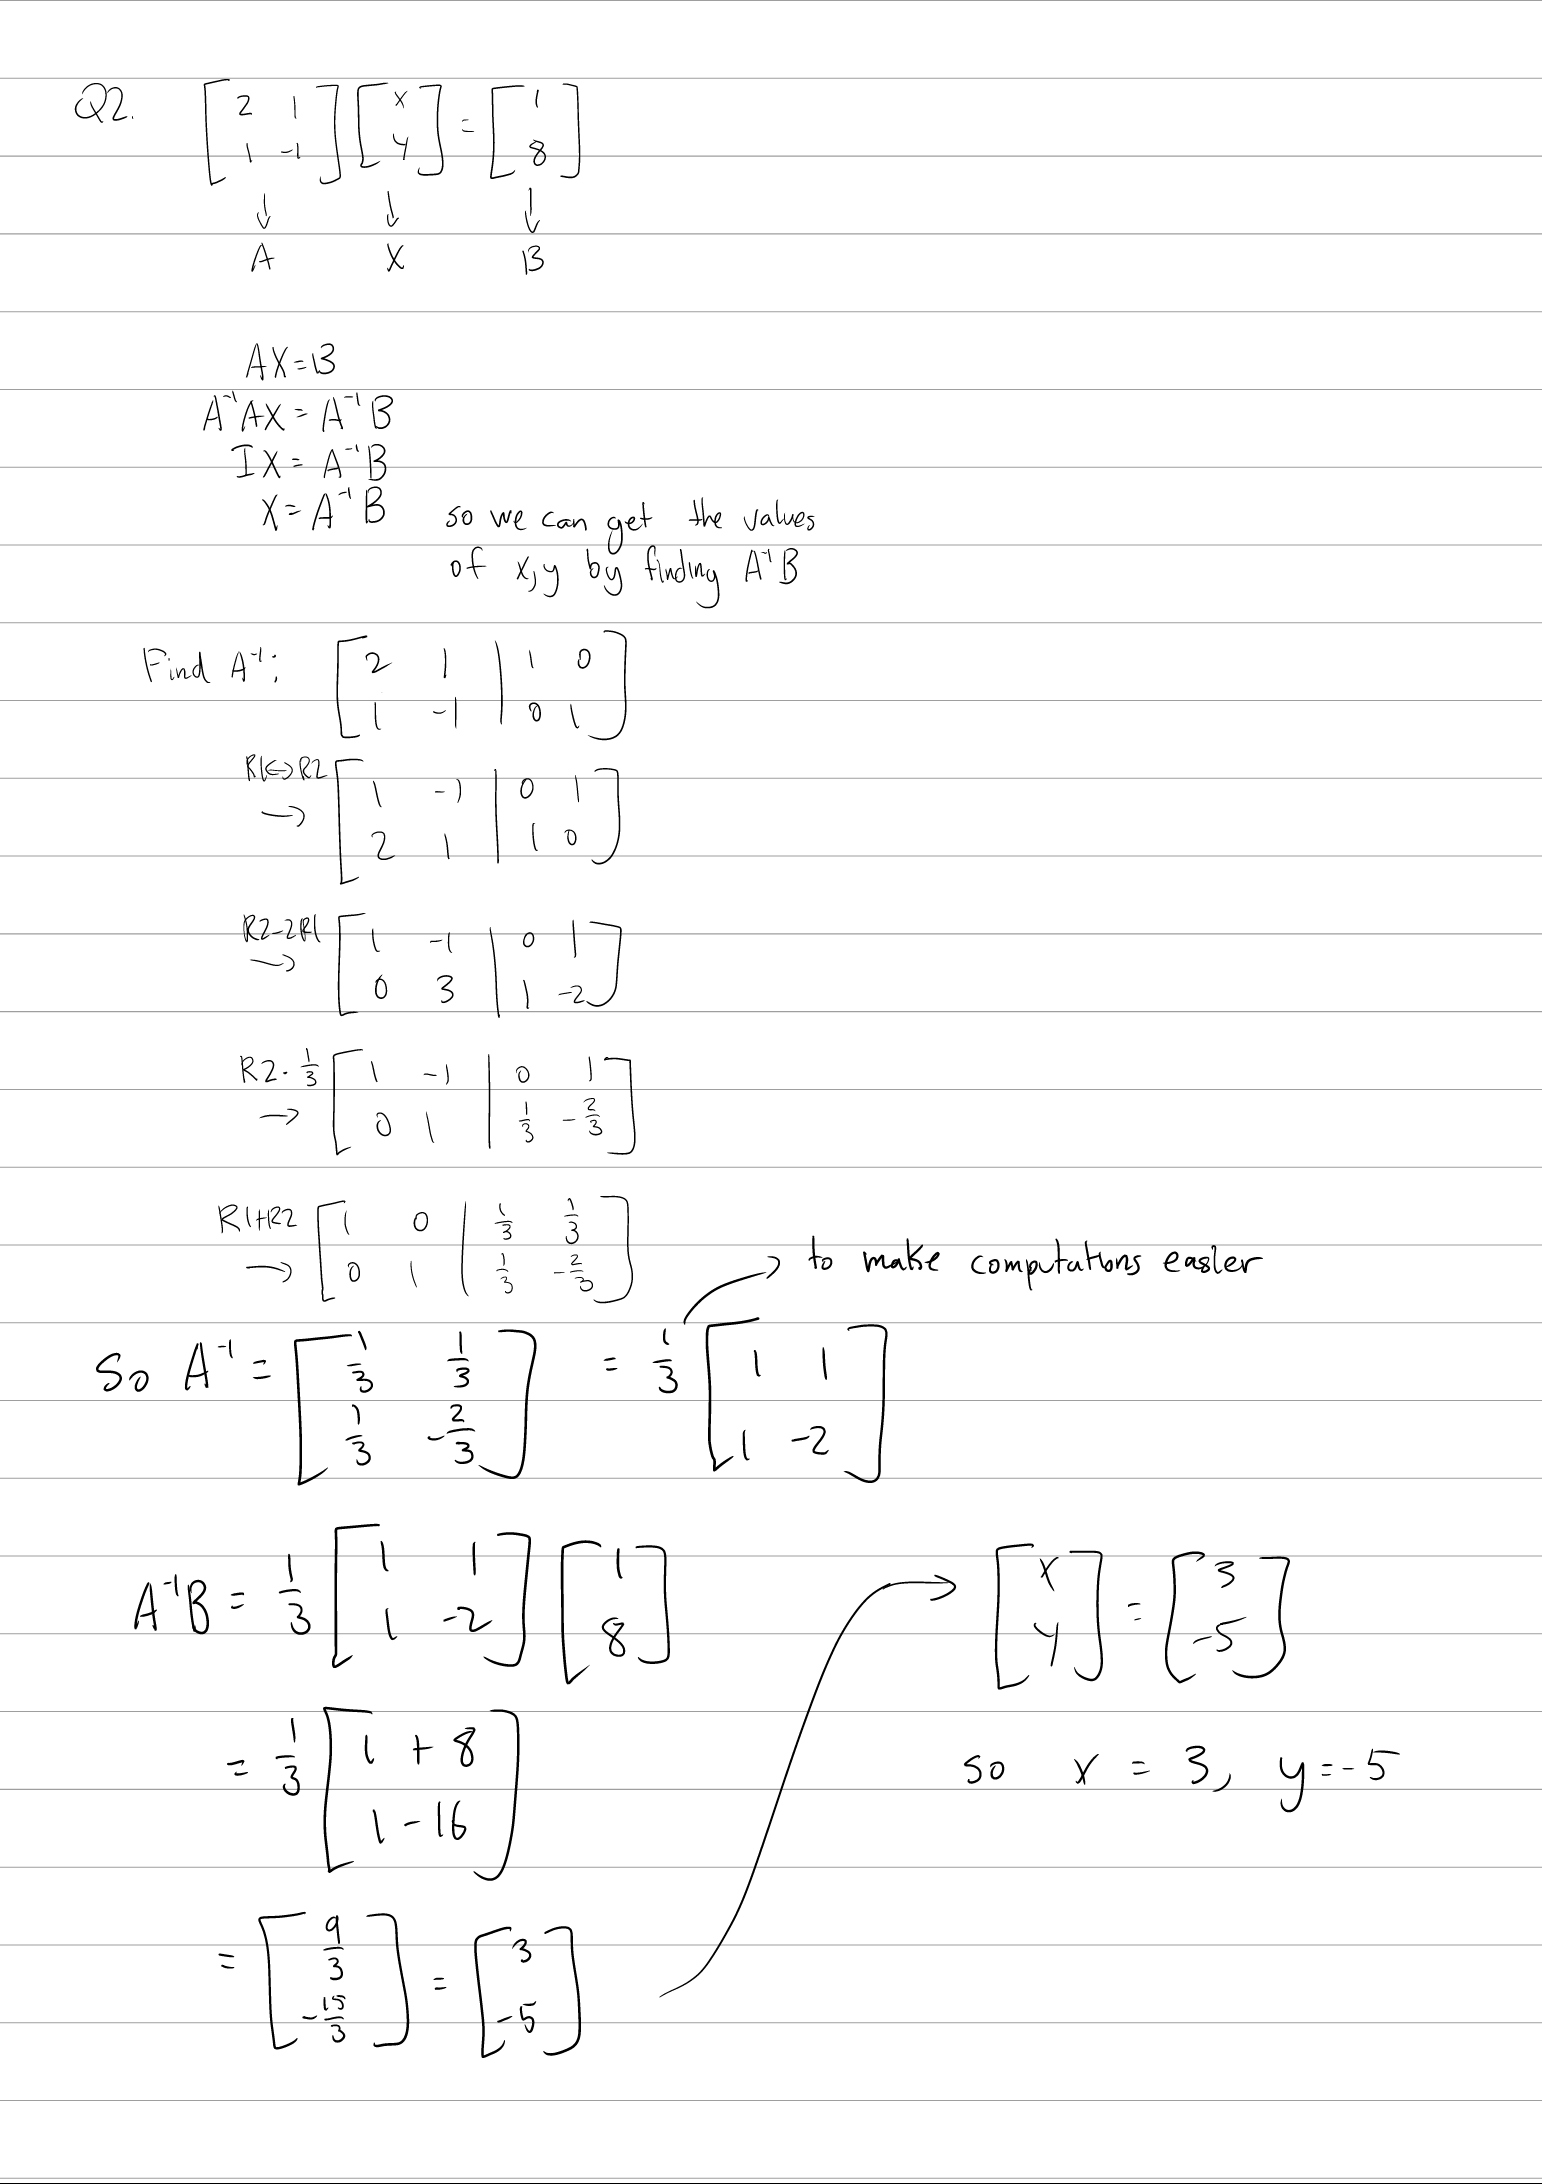 Q2. [2 1; 1 -1] [x; y] = [1; 8]
↓ ↓ ↓
A X B
AX=B
A⁻¹AX = A⁻¹B
IX = A⁻¹B
X = A⁻¹B so we can get the values
of x,y by finding A⁻¹B
Find A⁻¹: [2 1 | 1 0; 1 -1 | 0 1]
R1↔R2 → [1 -1 | 0 1; 2 1 | 1 0]
R2-2R1 → [1 -1 | 0 1; 0 3 | 1 -2]
R2·1/3 → [1 -1 | 0 1; 0 1 | 1/3 -2/3]
R1+R2 → [1 0 | 1/3 1/3; 0 1 | 1/3 -2/3]
→ to make computations easier
So A⁻¹ = [1/3 1/3; 1/3 -2/3] = 1/3 [1 1; 1 -2]
A⁻¹B = 1/3 [1 1; 1 -2] [1; 8]
= 1/3 [1 + 8; 1 - 16]
= [9/3; -15/3] = [3; -5]
→ [x; y] = [3; -5]
so x = 3, y = -5